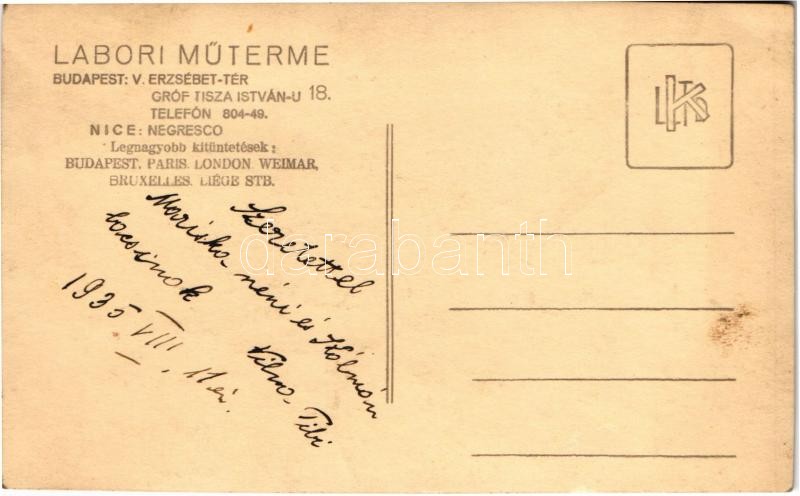 LABORI MŰTERME
BUDAPEST: V. ERZSÉBET-TÉR
GRÓF TISZA ISTVÁN-U 18.
TELEFÓN 804-49.
NICE: NEGRESCO
Legnagyobb kitüntetések:
BUDAPEST, PARIS, LONDON, WEIMAR,
BRUXELLES, LIÉGE STB.
Szeretettel
Mariska néni és Kálmán
bacsinak
Vilmo. Tibi
1935 VIII. 11én.
darabanth